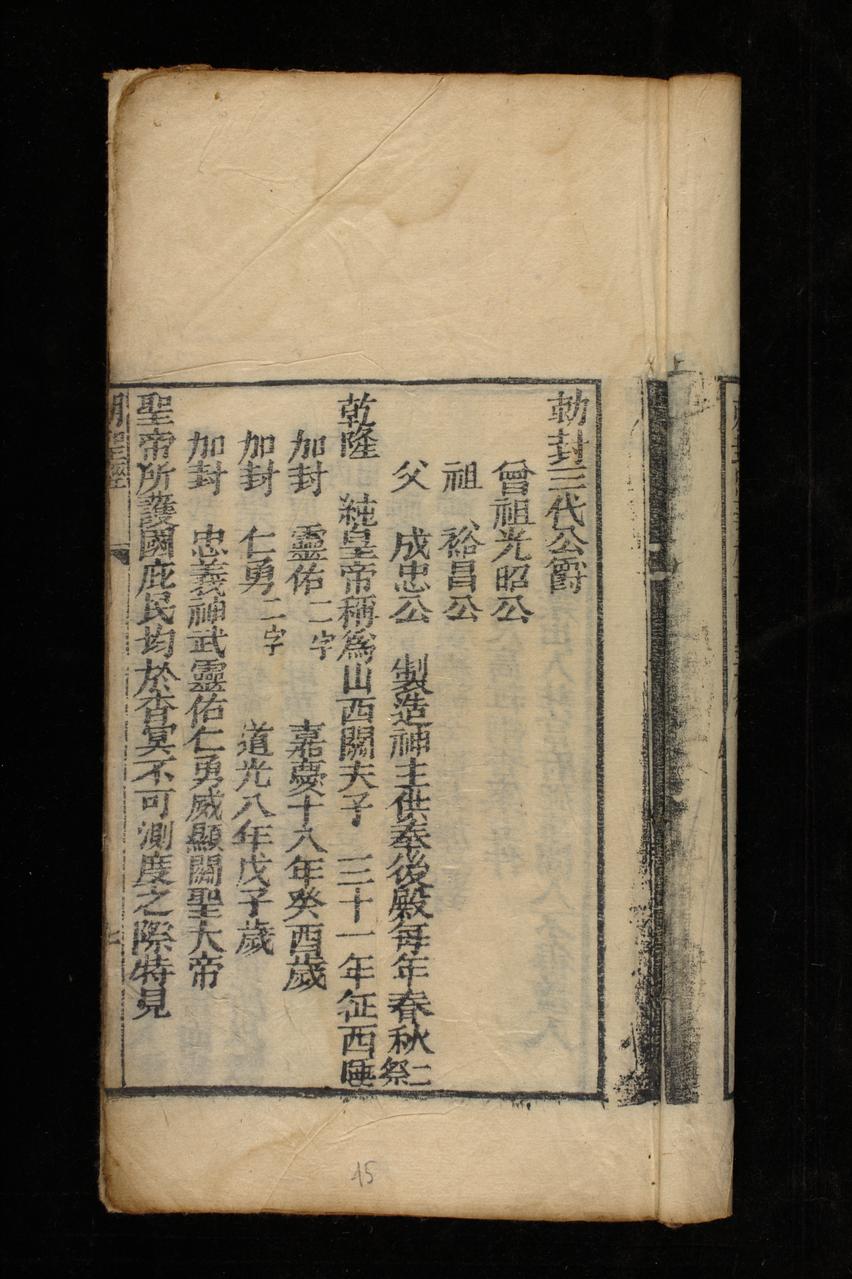 勅封三代公爵
曾祖光昭公
祖 裕昌公
父 成忠公 製造神主供奉後殿每年春秋二祭
乾隆 純皇帝稱爲山西關夫子 三十一年征西陲
加封 靈佑二字 嘉慶十八年癸酉歲
加封 仁勇二字 道光八年戊子歲
加封 忠義神武靈佑仁勇威顯關聖大帝
聖帝所護國庇民均於杳冥不可測度之際特見
明聖經
15